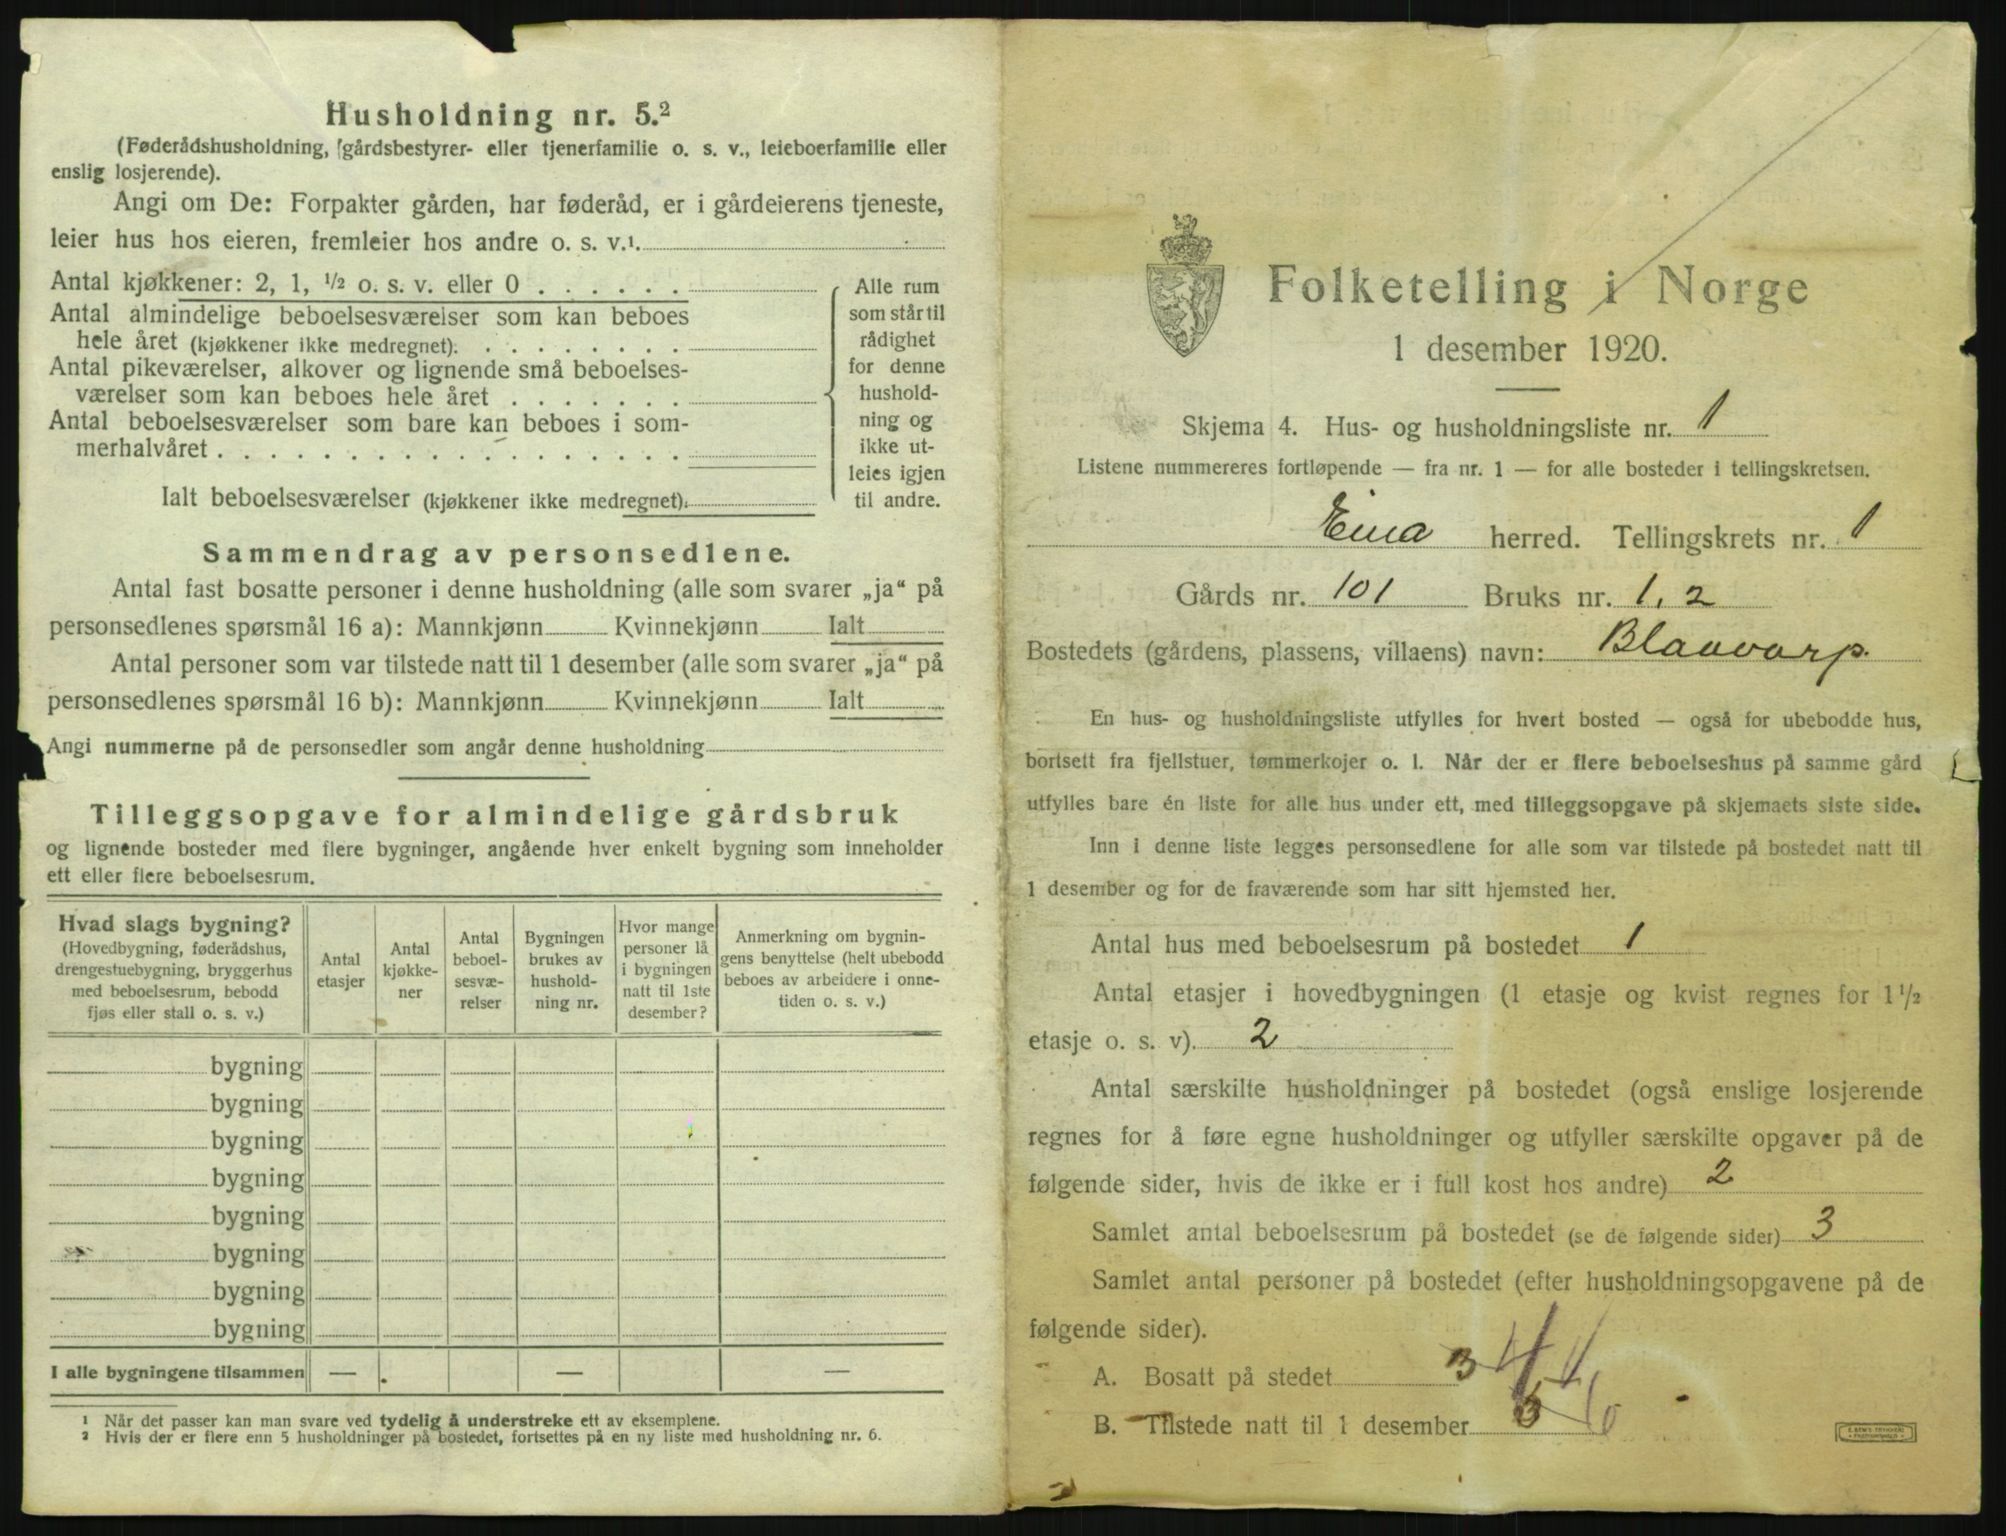 Husholdning nr. 5.²
(Føderådshusholdning, gårdsbestyrer- eller tjenerfamilie o. s. v., leieboerfamilie eller
enslig losjerende).
Angi om De: Forpakter gården, har føderåd, er i gårdeierens tjeneste,
leier hus hos eieren, fremleier hos andre o. s. v.¹.
Antal kjøkkener: 2, 1, ½ o. s. v. eller 0 . . . . . .
Antal almindelige beboelsesværelser som kan beboes
hele året (kjøkkener ikke medregnet). . . . . . . . .
Antal pikeværelser, alkover og lignende små beboelses-
værelser som kan beboes hele året . . . . . . .
Antal beboelsesværelser som bare kan beboes i som-
merhalvåret . . . . . . . . . . . . . . . . . .
Ialt beboelsesværelser (kjøkkener ikke medregnet).
Alle rum
som står til
rådighet
for denne
hushold-
ning og
ikke ut-
leies igjen
til andre.
Sammendrag av personsedlene.
Antal fast bosatte personer i denne husholdning (alle som svarer „ja“ på
personsedlenes spørsmål 16 a): Mannkjønn Kvinnekjønn Ialt
Antal personer som var tilstede natt til 1 desember (alle som svarer „ja“ på
personsedlenes spørsmål 16 b): Mannkjønn Kvinnekjønn Ialt
Angi nummerne på de personsedler som angår denne husholdning
Tilleggsopgave for almindelige gårdsbruk
og lignende bosteder med flere bygninger, angående hver enkelt bygning som inneholder
ett eller flere beboelsesrum.
Hvad slags bygning?
(Hovedbygning, føderådshus,
drengestuebygning, bryggerhus
med beboelsesrum, bebodd
fjøs eller stall o. s. v.)
Antal
etasjer
Antal
kjøkke-
ner
Antal
beboel-
sesvæ-
relser
Bygningen
brukes av
hushold-
ning nr.
Hvor mange
personer lå
i bygningen
natt til 1ste
desember?
Anmerkning om bygnin-
gens benyttelse (helt ubebodd
beboes av arbeidere i onne-
tiden o. s. v.)
bygning
bygning
bygning
bygning
bygning
bygning
bygning
bygning
I alle bygningene tilsammen — — —
¹ Når det passer kan man svare ved tydelig å understreke ett av eksemplene.
² Hvis der er flere enn 5 husholdninger på bostedet, fortsettes på en ny liste med husholdning nr. 6.
Folketelling i Norge
1 desember 1920.
Skjema 4. Hus- og husholdningsliste nr. 1
Listene nummereres fortløpende — fra nr. 1 — for alle bosteder i tellingskretsen.
Eina herred. Tellingskrets nr. 1
Gårds nr. 101 Bruks nr. 1, 2
Bostedets (gårdens, plassens, villaens) navn: Blaavarp.
En hus- og husholdningsliste utfylles for hvert bosted — også for ubebodde hus,
bortsett fra fjellstuer, tømmerkojer o. l. Når der er flere beboelseshus på samme gård
utfylles bare én liste for alle hus under ett, med tilleggsopgave på skjemaets siste side.
Inn i denne liste legges personsedlene for alle som var tilstede på bostedet natt til
1 desember og for de fraværende som har sitt hjemsted her.
Antal hus med beboelsesrum på bostedet 1
Antal etasjer i hovedbygningen (1 etasje og kvist regnes for 1½
etasje o. s. v). 2
Antal særskilte husholdninger på bostedet (også enslige losjerende
regnes for å føre egne husholdninger og utfyller særskilte opgaver på de
følgende sider, hvis de ikke er i full kost hos andre) 2
Samlet antal beboelsesrum på bostedet (se de følgende sider) 3
Samlet antal personer på bostedet (efter husholdningsopgavene på de
følgende sider).
A. Bosatt på stedet 3 4 4
B. Tilstede natt til 1 desember 6